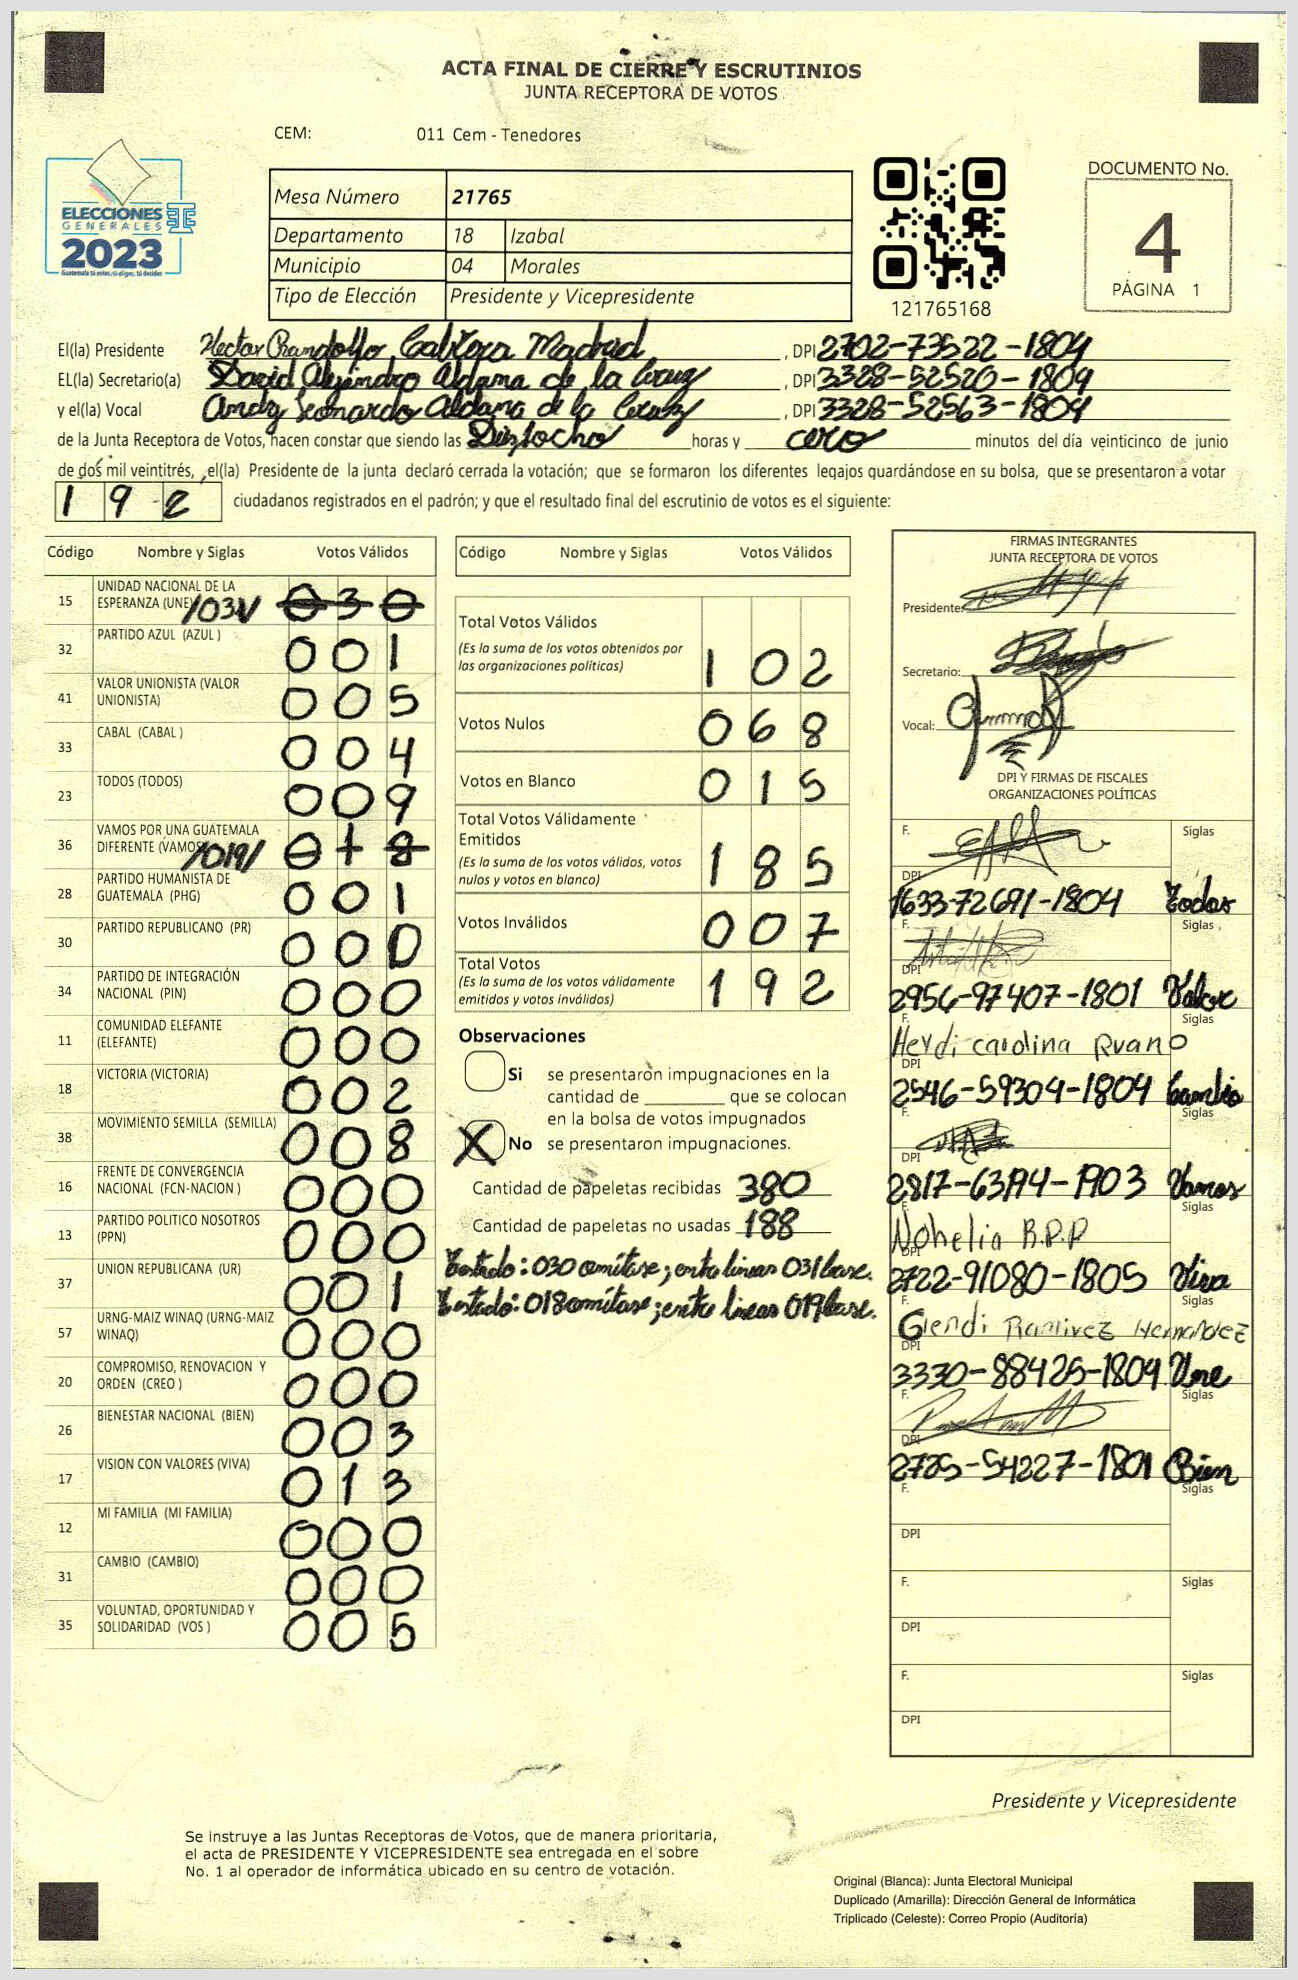 ACTA FINAL DE CIERRE Y ESCRUTINIOS
JUNTA RECEPTORA DE VOTOS
CEM: 011 Cem - Tenedores
ELECCIONES
GENERALES
2023
Guatemala tú eres, tú eliges, tú decides
Mesa Número 21765
Departamento 18 Izabal
Municipio 04 Morales
Tipo de Elección Presidente y Vicepresidente
121765168
DOCUMENTO No.
4
PÁGINA 1
El(la) Presidente Hector Randolfo Cabrera Madrid, DPI 2702-73522-1804
EL(la) Secretario(a) David Alejandro Aldana de la Cruz, DPI 3328-52520-1804
y el(la) Vocal Andy Leonardo Aldana de la Cruz, DPI 3328-52563-1804
de la Junta Receptora de Votos, hacen constar que siendo las Dieciocho horas y cero minutos del día veinticinco de junio
de dos mil veintitrés, el(la) Presidente de la junta declaró cerrada la votación; que se formaron los diferentes legajos quardándose en su bolsa, que se presentaron a votar
192 ciudadanos registrados en el padrón; y que el resultado final del escrutinio de votos es el siguiente:
Código Nombre y Siglas Votos Válidos
15 UNIDAD NACIONAL DE LA ESPERANZA (UNE) /031/ 030
32 PARTIDO AZUL (AZUL ) 001
41 VALOR UNIONISTA (VALOR UNIONISTA) 005
33 CABAL (CABAL ) 004
23 TODOS (TODOS) 009
36 VAMOS POR UNA GUATEMALA DIFERENTE (VAMOS) /019/ 018
28 PARTIDO HUMANISTA DE GUATEMALA (PHG) 001
30 PARTIDO REPUBLICANO (PR) 000
34 PARTIDO DE INTEGRACIÓN NACIONAL (PIN) 000
11 COMUNIDAD ELEFANTE (ELEFANTE) 000
18 VICTORIA (VICTORIA) 002
38 MOVIMIENTO SEMILLA (SEMILLA) 008
16 FRENTE DE CONVERGENCIA NACIONAL (FCN-NACION ) 000
13 PARTIDO POLITICO NOSOTROS (PPN) 000
37 UNION REPUBLICANA (UR) 001
57 URNG-MAIZ WINAQ (URNG-MAIZ WINAQ) 000
20 COMPROMISO, RENOVACION Y ORDEN (CREO ) 000
26 BIENESTAR NACIONAL (BIEN) 003
17 VISION CON VALORES (VIVA) 013
12 MI FAMILIA (MI FAMILIA) 000
31 CAMBIO (CAMBIO) 000
35 VOLUNTAD, OPORTUNIDAD Y SOLIDARIDAD (VOS ) 005
Código Nombre y Siglas Votos Válidos
Total Votos Válidos
(Es la suma de los votos obtenidos por
las organizaciones políticas) 102
Votos Nulos 068
Votos en Blanco 015
Total Votos Válidamente
Emitidos
(Es la suma de los votos válidos, votos
nulos y votos en blanco) 185
Votos Inválidos 007
Total Votos
(Es la suma de los votos válidamente
emitidos y votos inválidos) 192
Observaciones
Si se presentaron impugnaciones en la
cantidad de ________ que se colocan
en la bolsa de votos impugnados
X No se presentaron impugnaciones.
Cantidad de papeletas recibidas 380
Cantidad de papeletas no usadas 188
Testado: 030 omitase; entre lineas 031 lease.
Testado: 018 omitase; entre lineas 019 lease.
FIRMAS INTEGRANTES
JUNTA RECEPTORA DE VOTOS
Presidente:
Secretario:
Vocal:
DPI Y FIRMAS DE FISCALES
ORGANIZACIONES POLÍTICAS
F. Siglas
DPI 1633-72691-1804 Todos
F. Siglas
DPI 2956-97407-1801 Valor
F. Heydi carolina Ruano Siglas
DPI 2546-59304-1804 Cambio
F. Siglas
DPI 2817-63194-1903 Vamos
F. Nohelia B.P.P Siglas
DPI 2722-91080-1805 Viva
F. Glendi Ramirez Hernandez Siglas
DPI 3330-88425-1804 Une
F. Siglas
DPI 2725-54227-1801 Bien
F. Siglas
DPI
F. Siglas
DPI
F. Siglas
DPI
Presidente y Vicepresidente
Se instruye a las Juntas Receptoras de Votos, que de manera prioritaria,
el acta de PRESIDENTE Y VICEPRESIDENTE sea entregada en el sobre
No. 1 al operador de informática ubicado en su centro de votación.
Original (Blanca): Junta Electoral Municipal
Duplicado (Amarilla): Dirección General de Informática
Triplicado (Celeste): Correo Propio (Auditoría)